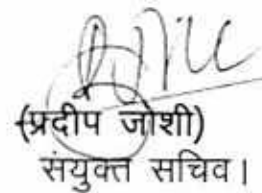 (प्रदीप जोशी)
संयुक्त सचिव।